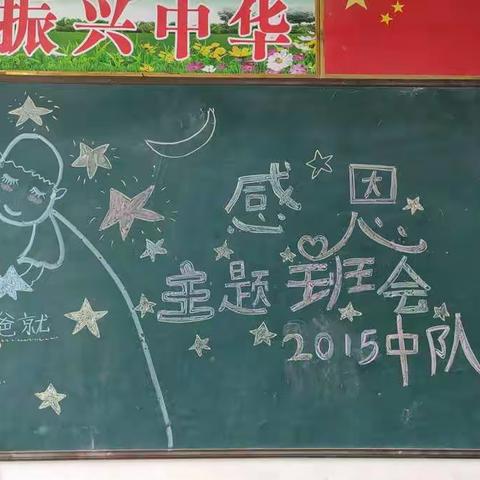 振兴中华
感恩
主题班会
2015中队
爸就